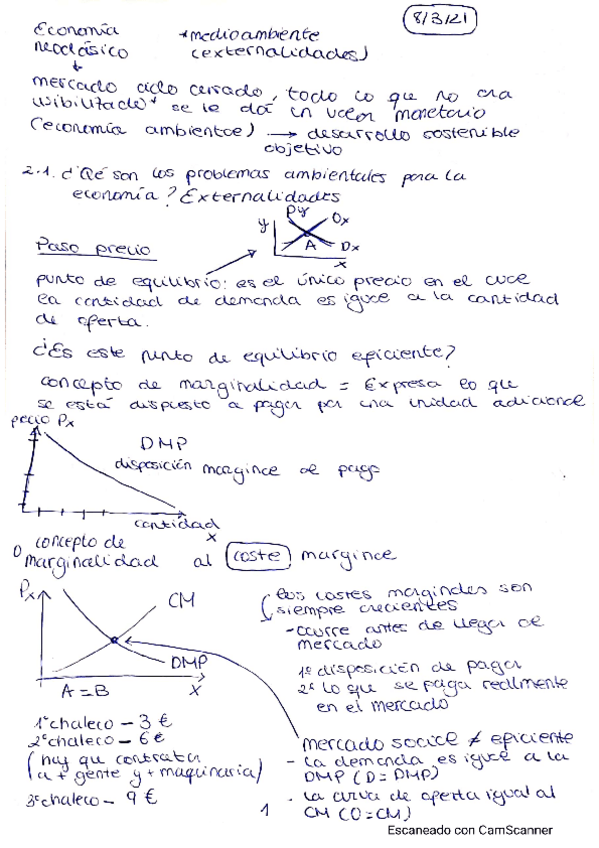 8/3/21
Economía *medioambiente
neoclásico (externalidades)
mercado ciclo cerrado, todo lo que no era
se le dá un valor monetario
(economía ambiental) → desarrollo sostenible
objetivo
2.1. ¿Qé son los problemas ambientales para la
economía? Externalidades
y Py Ox
A Dx
x
Paso precio
punto de equilibrio: es el único precio en el cual
la cantidad de demanda es igual a la cantidad
de oferta.
¿Es este punto de equilibrio eficiente?
concepto de marginalidad = Expresa lo que
se está dispuesto a pagar por una unidad adicional
precio Px
DMP
disposición marginal de pago
cantidad
x
concepto de
marginalidad al coste marginal
Px CM
DMP
A=B X
los costes marginales son
siempre crecientes
- ocurre antes de llegar al
mercado
1º disposición de pagar
2º lo que se paga realmente
en el mercado
1º chaleco - 3 €
2º chaleco - 6 €
(hay que contratar
a + gente y + maquinaria)
3º chaleco - 9 €
mercado social ≠ eficiente
- la demanda es igual a la
DMP (D=DMP)
- la curva de oferta igual al
CM (O=CM)
1
Escaneado con CamScanner